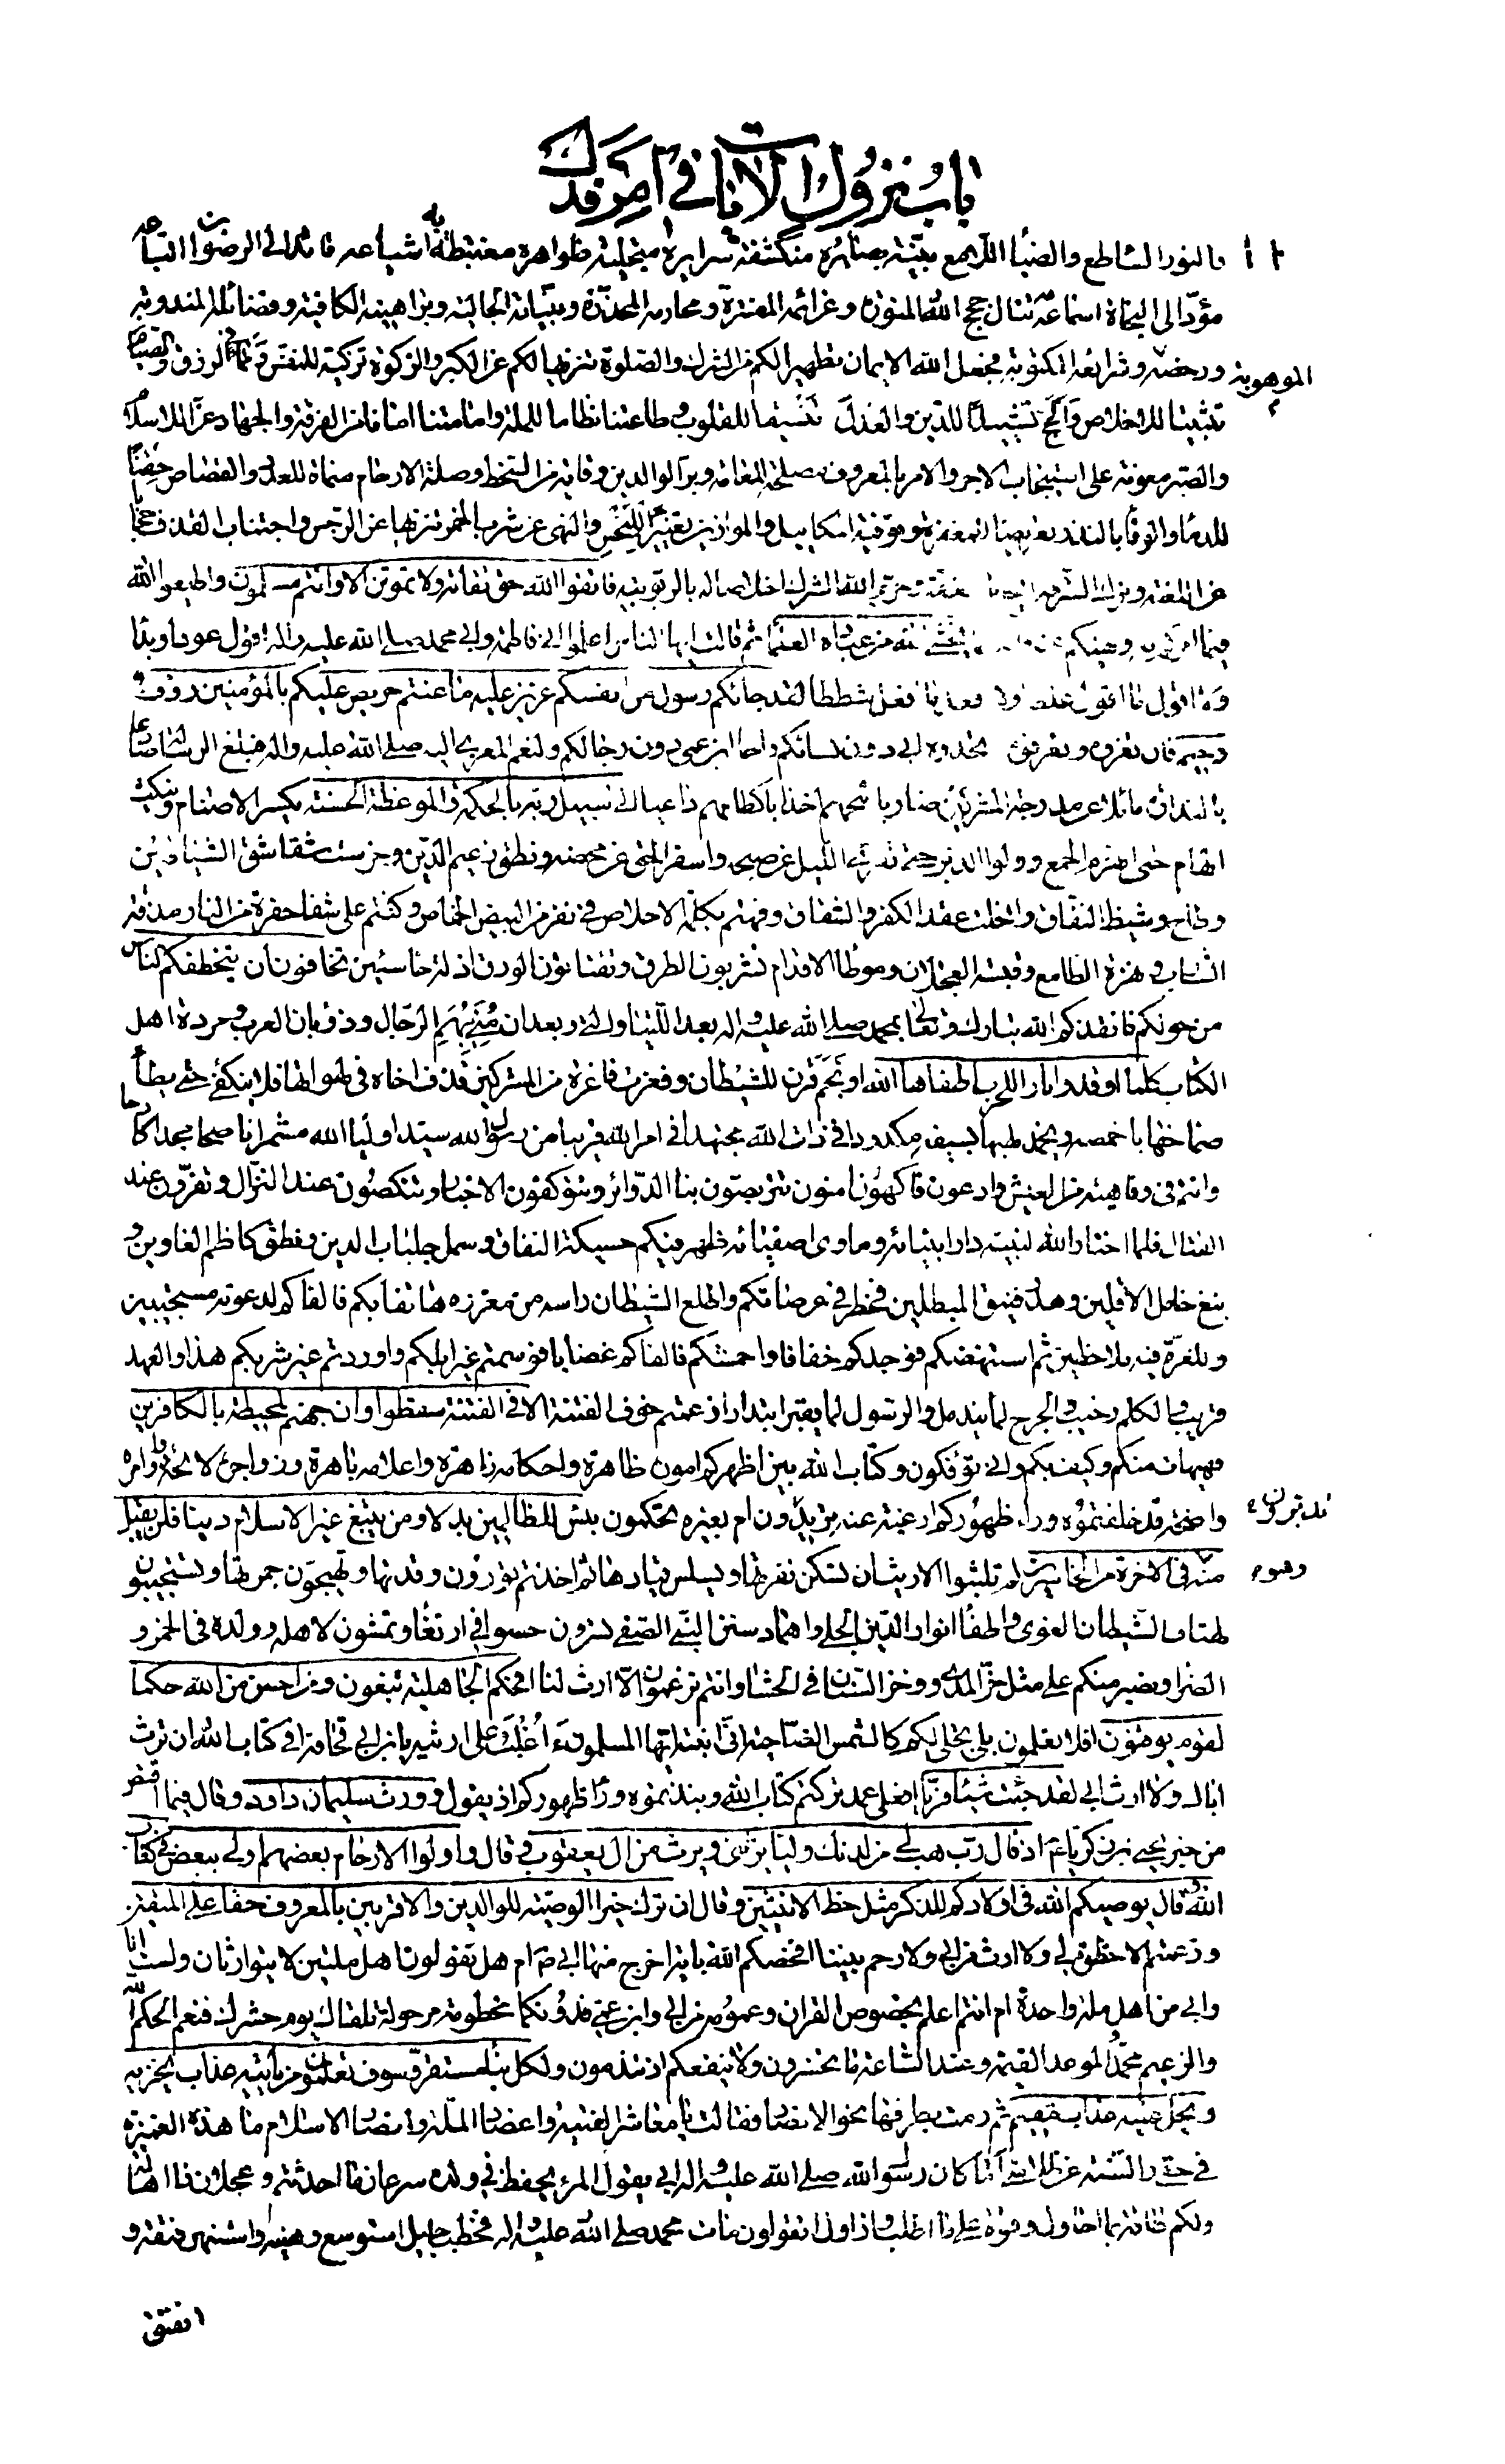 باب نزول الآيات في امر فدك
١١ والنور الساطع والضياء اللامع بينة بصائره منكشفة سرايره متجلية ظواهره مغتبطة به اشياعه قائد الى الرضوان اتباعه
مؤد الى النجاة استماعه به تنال حجج الله المنورة وعزائمه المفسرة ومحارمه المحذرة وبيناته الجالية وبراهينه الكافية وفضائله المندوبة
ورخصه الموهوبة وشرايعه المكتوبة فجعل الله الايمان تطهيرا لكم من الشرك والصلوة تنزيها لكم عن الكبر والزكوة تزكية للنفس ونماء في الرزق والصيام
تثبيتا للاخلاص والحج تشييدا للدين والعدل تنسيقا للقلوب وطاعتنا نظاما للملة وامامتنا امانا من الفرقة والجهاد عزا للاسلام
والصبر معونة على استيجاب الاجر والامر بالمعروف مصلحة للعامة وبر الوالدين وقاية من السخط وصلة الارحام منماة للعدد والقصاص حقنا
للدماء والوفاء بالنذر تعريضا للمغفرة وتوفية المكاييل والموازين تغييرا للبخس والنهي عن شرب الخمر تنزيها عن الرجس واجتناب القذف حجابا
عن اللعنة وترك السرقة ايجابا للعفة وحرم الله الشرك اخلاصا له بالربوبية فاتقوا الله حق تقاته ولا تموتن الا وانتم مسلمون واطيعوا الله
فيما امركم به ونهيكم عنه يخشى الله من عباده العلماء ثم قالت ايها الناس اعلموا اني فاطمة وابي محمد صلى الله عليه واله اقول عودا وبدءا
ولا اقول ما اقول غلطا ولا افعل ما افعل شططا لقد جائكم رسول من انفسكم عزيز عليه ما عنتم حريص عليكم بالمؤمنين رؤف
رحيم فان تعزوه وتعرفوه تجدوه ابي دون نسائكم واخا ابن عمي دون رجالكم ولنعم المعزي اليه صلى الله عليه واله فبلغ الرسالة صادعا
بالنذارة مائلا عن مدرجة المشركين ضاربا ثبجهم اخذا باكظامهم داعيا الى سبيل ربه بالحكمة والموعظة الحسنة يكسر الاصنام وينكث
الهام حتى انهزم الجمع وولوا الدبر حتى تفرى الليل عن صبحه واسفر الحق عن محضه ونطق زعيم الدين وخرست شقاشق الشياطين
وطاح وشيظ النفاق وانحلت عقد الكفر والشقاق وفهتم بكلمة الاخلاص في نفر من البيض الخماص وكنتم على شفا حفرة من النار مذقة
الشارب ونهزة الطامع وقبسة العجلان وموطأ الاقدام تشربون الطرق وتقتاتون الورق اذلة خاسئين تخافون ان يتخطفكم الناس
من حولكم فانقذكم الله تبارك وتعالى بمحمد صلى الله عليه واله بعد اللتيا والتي وبعد ان مني ببهم الرجال وذؤبان العرب ومردة اهل
الكتاب كلما اوقدوا نارا للحرب اطفاها الله او نجم قرن للشيطان وفغرت فاغرة من المشركين قذف اخاه في لهواتها فلا ينكفئ حتى يطأ
صماخها باخمصه ويخمد لهبها بسيفه مكدودا في ذات الله مجتهدا في امر الله قريبا من رسول الله سيد اولياء الله مشمرا ناصحا مجدا كادحا
وانتم في رفاهية من العيش وادعون فاكهون امنون تتربصون بنا الدوائر وتتوكفون الاخبار وتنكصون عند النزال وتفرون عند
القتال فلما اختار الله لنبيه دار انبيائه وماوى اصفيائه ظهر فيكم حسيكة النفاق وسمل جلباب الدين ونطق كاظم الغاوين و
نبغ خامل الاقلين وهدر فنيق المبطلين فخطر في عرصاتكم واطلع الشيطان راسه من مغرزه هاتفا بكم فالفاكم لدعوته مستجيبين
وللغرة فيه ملاحظين ثم استنهضكم فوجدكم خفافا واحمشكم فالفاكم غضابا فوسمتم غير ابلكم واوردتم غير شربكم هذا والعهد
قريب والكلم رحيب والجرح لما يندمل والرسول لما يقبر ابتدارا زعمتم خوف الفتنة الا في الفتنة سقطوا وان جهنم لمحيطة بالكافرين
فهيهات منكم وكيف بكم وانى تؤفكون وكتاب الله بين اظهركم اموره ظاهرة واحكامه زاهرة واعلامه باهرة وزواجره لائحة واوامره
واضحة قد خلفتموه وراء ظهوركم ارغبة عنه تدبرون ام بغيره تحكمون بئس للظالمين بدلا ومن يبتغ غير الاسلام دينا فلن يقبل
منه وهو في الاخرة من الخاسرين ثم لم تلبثوا الا ريث ان تسكن نفرتها ويسلس قيادها ثم اخذتم تورون وقدتها وتهيجون جمرتها وتستجيبون
لهتاف الشيطان الغوي واطفاء انوار الدين الجلي واهماد سنن النبي الصفي تسرون حسوا في ارتغاء وتمشون لاهله وولده في الخمر و
الضراء ونصبر منكم على مثل حز المدى ووخز السنان في الحشا وانتم تزعمون الا ارث لنا افحكم الجاهلية تبغون ومن احسن من الله حكما
لقوم يوقنون افلا تعلمون بلى تجلى لكم كالشمس الضاحية اني ابنته ايها المسلمون ءاغلب على ارثيه يا بن ابي قحافة افي كتاب الله ان ترث
اباك ولا ارث ابي لقد جئت شيئا فريا افعلى عمد تركتم كتاب الله ونبذتموه وراء ظهوركم اذ يقول وورث سليمان داود وقال فيما اقتص
من خبر يحيى بن زكريا ع اذ قال رب هب لي من لدنك وليا يرثني ويرث من ال يعقوب وقال واولوا الارحام بعضهم اولى ببعض في كتاب
الله وقال يوصيكم الله في اولادكم للذكر مثل حظ الانثيين وقال ان ترك خيرا الوصية للوالدين والاقربين بالمعروف حقا على المتقين
وزعمتم الا حظوة لي ولا ارث من ابي ولا رحم بيننا افخصكم الله باية اخرج منها ابي ص ام هل تقولون اهل ملتين لا يتوارثان ولست انا
وابي من اهل ملة واحدة ام انتم اعلم بخصوص القران وعمومه من ابي وابن عمي فدونكما مخطومة مرحولة تلقاك يوم حشرك فنعم الحكم الله
والزعيم محمد والموعد القيمة وعند الساعة ما تخسرون ولا ينفعكم اذ تندمون ولكل نبأ مستقر وسوف تعلمون من ياتيه عذاب يخزيه
ويحل عليه عذاب مقيم ثم رمت بطرفها نحو الانصار فقالت يا معاشر الفتية واعضاد الملة وانصار الاسلام ما هذه الغميزة
في حقي والسنة عن ظلامتي اما كان رسول الله صلى الله عليه واله ابي يقول المرء يحفظ في ولده سرعان ما احدثتم وعجلان ذا اهالة
ولكم طاقة بما احاول وقوة على ما اطلب وازاول اتقولون مات محمد صلى الله عليه واله فخطب جليل استوسع وهنه واستنهر فتقه و
انفتق